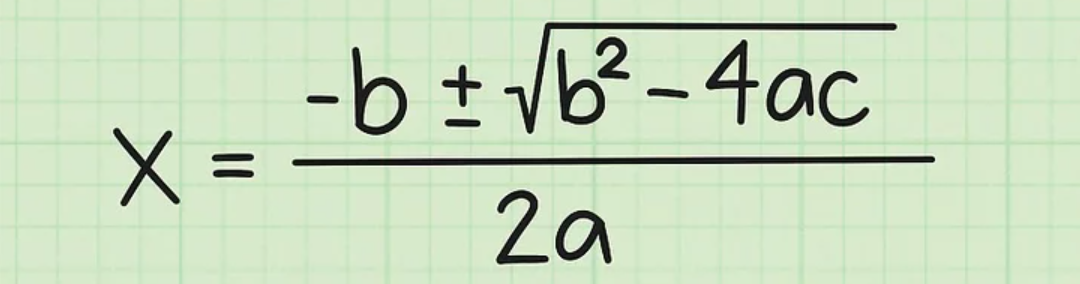 x = (-b ± √(b² - 4ac)) / (2a)